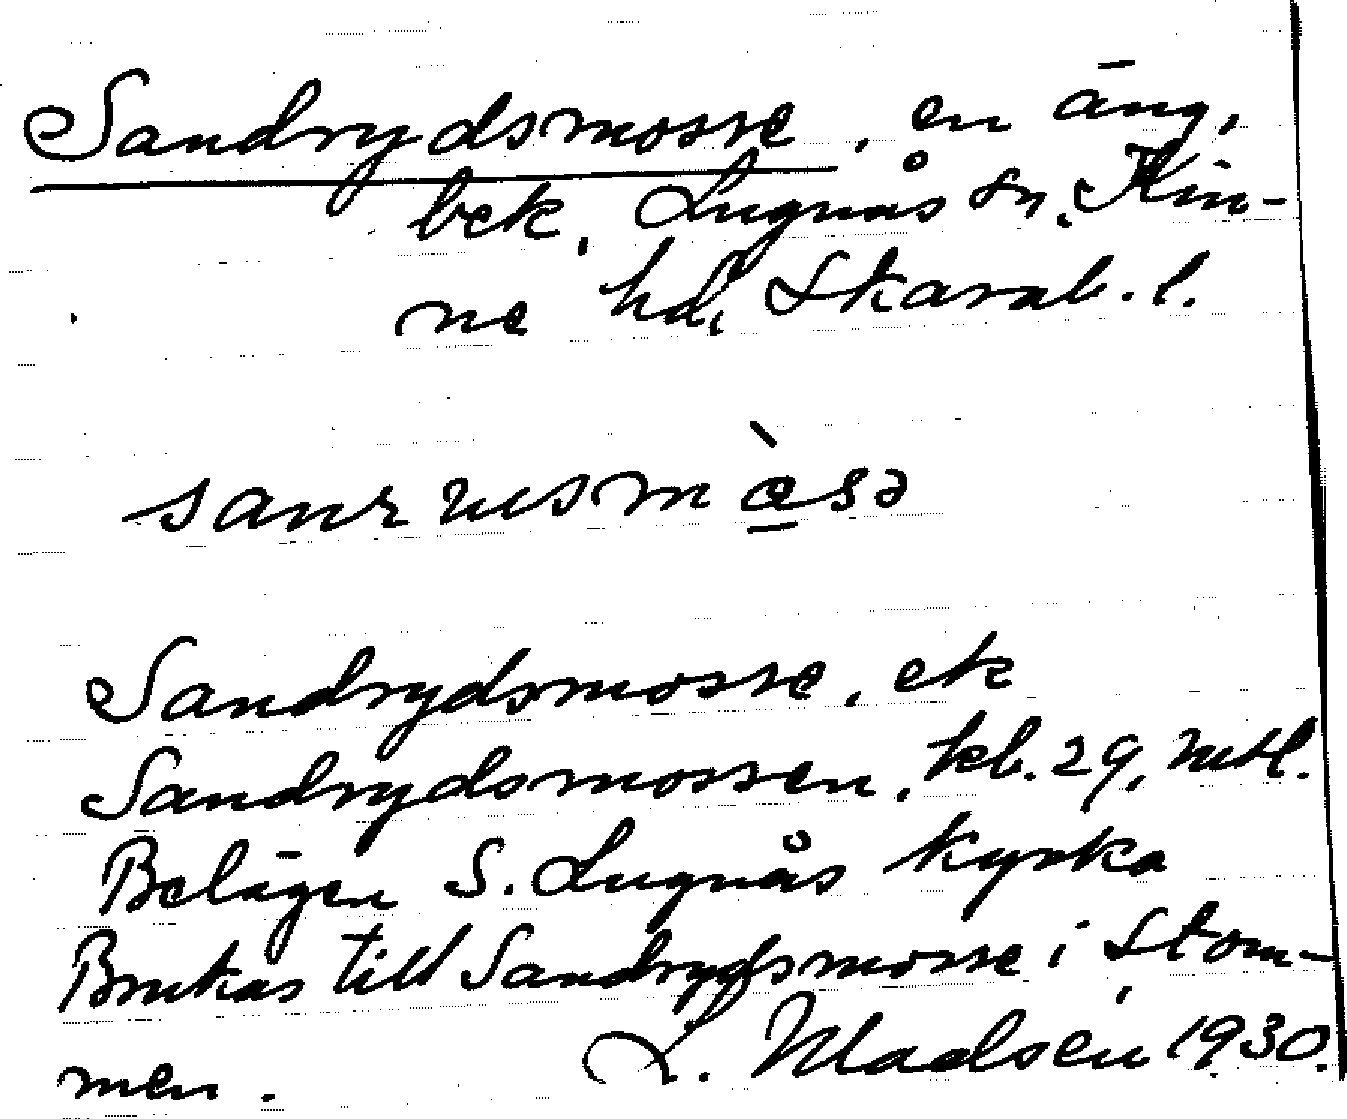 Sandrydsmosse, en äng,
bek. Lugnås sn, Kin-
ne hd, Skarab. l.
Sandrydsmosse, ek
Sandrydsmossen, kb. 29, mtl.
Belägen S. Lugnås kyrka
Brukas till Sandrydsmosse i Stom-
men. L. Madsen, 1930.